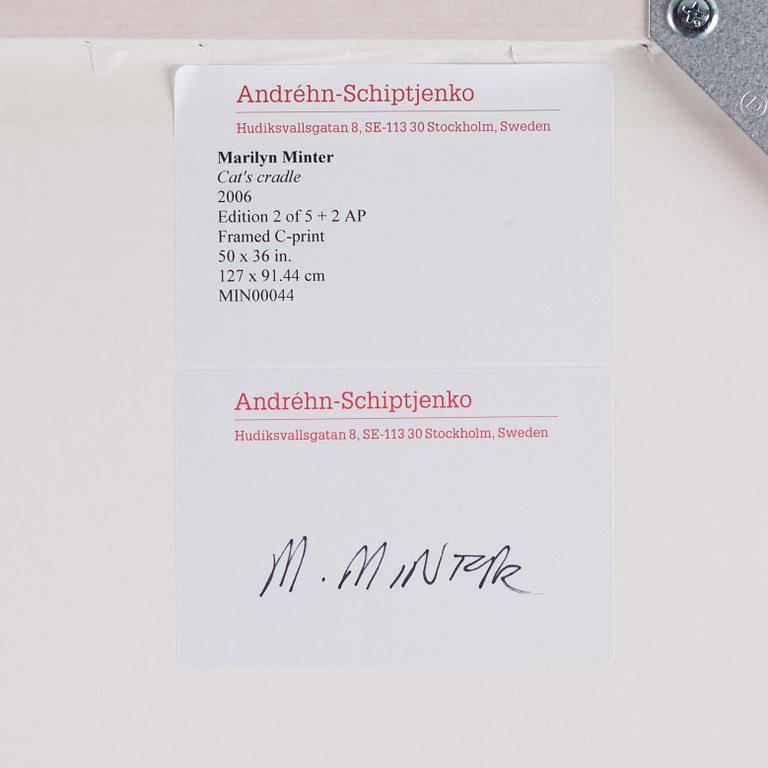 Andréhn-Schiptjenko
Hudiksvallsgatan 8, SE-113 30 Stockholm, Sweden
Marilyn Minter
Cat's cradle
2006
Edition 2 of 5 + 2 AP
Framed C-print
50 x 36 in.
127 x 91.44 cm
MIN00044
Andréhn-Schiptjenko
Hudiksvallsgatan 8, SE-113 30 Stockholm, Sweden
M. MINTER